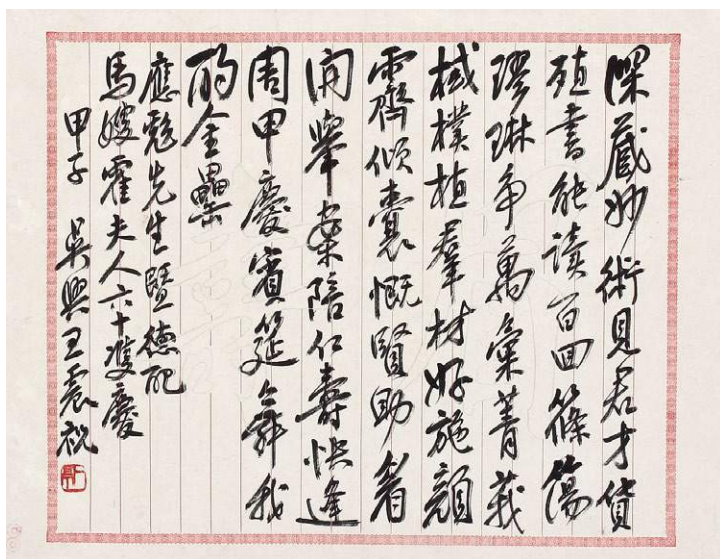 深藏妙術見君才貨
殖書能讀百回篠簜
璆琳爭萬彙菁莪
棫樸植羣材好施顏
霽傾囊慨賢助眉
開舉案陪仁壽快逢
周甲慶賓筵合舞我
酌金罍
應彪先生暨德配
馬嫂霍夫人六十雙慶
甲子 吳興王震祝